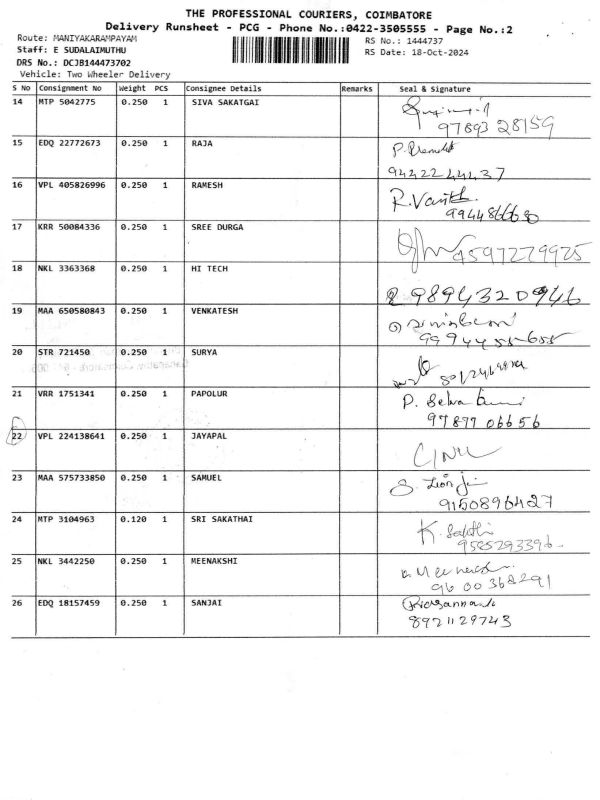 THE PROFESSIONAL COURIERS, COIMBATORE
Delivery Runsheet - PCG - Phone No.:0422-3505555 - Page No.:2
Route: MANIYAKARAMPAYAM
RS No.: 1444737
Staff: E SUDALAIMUTHU
RS Date: 18-Oct-2024
DRS No.: DCJB144473702
Vehicle: Two Wheeler Delivery
S No Consignment No Weight PCS Consignee Details Remarks Seal & Signature
14 MTP 5042775 0.250 1 SIVA SAKATGAI
97893 28159
15 EDQ 22772673 0.250 1 RAJA P.
9442244437
16 VPL 405826996 0.250 1 RAMESH R.
9944866680
17 KRR 50084336 0.250 1 SREE DURGA
9597279925
18 NKL 3363368 0.250 1 HI TECH
9894320946
19 MAA 650580843 0.250 1 VENKATESH
9994455655
20 STR 721450 0.250 1 SURYA
21 VRR 1751341 0.250 1 PAPOLUR P. Selva
97877 06656
22 VPL 224138641 0.250 1 JAYAPAL
23 MAA 575733850 0.250 1 SAMUEL S.
9150896427
24 MTP 3104963 0.120 1 SRI SAKATHAI K. Sakthi
9585293396
25 NKL 3442250 0.250 1 MEENAKSHI
96 00 368291
26 EDQ 18157459 0.250 1 SANJAI
8921129743